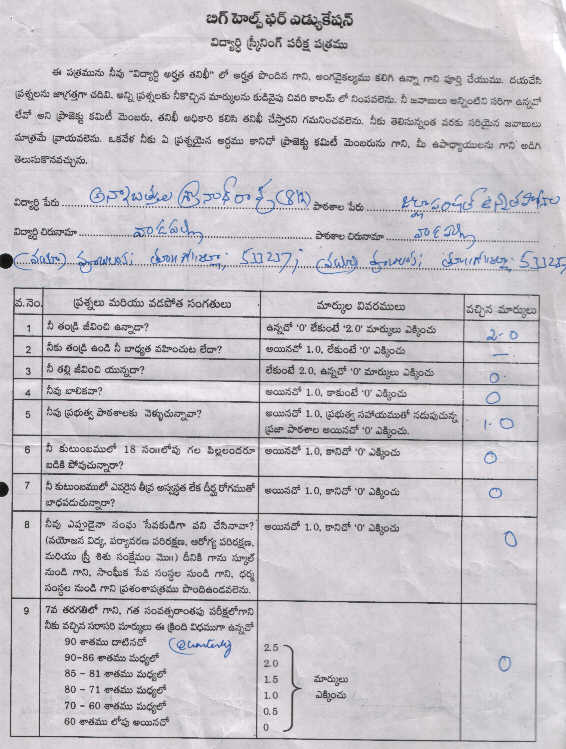 బిగ్ హెల్ప్ ఫర్ ఎడ్యుకేషన్
విద్యార్థి స్క్రీనింగ్ పరీక్ష పత్రము
ఈ పత్రమును నీవు "విద్యార్థి అర్హత తనిఖీ" లో అర్హత పొందిన గాని, అంగవైకల్యము కలిగి ఉన్నా గాని పూర్తి చేయుము. దయచేసి
ప్రశ్నలను జాగ్రత్తగా చదివి, అన్ని ప్రశ్నలకు నీకొచ్చిన మార్కులను కుడివైపు చివరి కాలమ్ లో నింపవలెను. నీ జవాబులు అన్నింటిని సరిగా ఉన్నదో
లేదో అని ప్రాజెక్టు కమిటీ మెంబరు, తనిఖీ అధికారి కలిసి తనిఖీ చేస్తారని గమనించవలెను. నీకు తెలిసున్నంత వరకు సరియైన జవాబులు
మాత్రమే వ్రాయవలెను. ఒకవేళ నీకు ఏ ప్రశ్నయైన అర్థము కానిచో ప్రాజెక్టు కమిటీ మెంబరును గాని, మీ ఉపాధ్యాయులను గాని అడిగి
తెలుసుకొనవచ్చును.
విద్యార్థి పేరు పాఠశాల పేరు
విద్యార్థి చిరునామా వాడపల్లి పాఠశాల చిరునామా వాడపల్లి
533237; 533237
వ.నెం. ప్రశ్నలు మరియు వడపోత సంగతులు మార్కుల వివరములు వచ్చిన మార్కులు
1 నీ తండ్రి జీవించి ఉన్నాడా? ఉన్నచో '0' లేకుంటే '2.0' మార్కులు ఎక్కించు 2.0
2 నీకు తండ్రి ఉండి నీ బాధ్యత వహించుట లేదా? అయినచో 1.0, లేకుంటే '0' ఎక్కించు —
3 నీ తల్లి జీవించి యున్నదా? లేకుంటే 2.0, ఉన్నచో '0' మార్కులు ఎక్కించు 0
4 నీవు బాలికవా? అయినచో 1.0, కాకుంటే '0' ఎక్కించు 0
5 నీవు ప్రభుత్వ పాఠశాలకు వెళ్ళుచున్నావా? అయినచో 1.0, ప్రభుత్వ సహాయముతో నడుపుచున్న 1.0
ప్రజా పాఠశాల అయినచో '0' ఎక్కించు.
6 నీ కుటుంబములో 18 సం॥లోపు గల పిల్లలందరూ అయినచో 1.0, కానిచో '0' ఎక్కించు 0
బడికి పోవుచున్నారా?
7 నీ కుటుంబములో ఎవరైన తీవ్ర అస్వస్థత లేక దీర్ఘ రోగముతో అయినచో 1.0, కానిచో '0' ఎక్కించు 0
బాధపడుచున్నారా?
8 నీవు ఎప్పుడైనా సంఘ సేవకుడిగా పని చేసినావా? అయినచో 1.0, కానిచో '0' ఎక్కించు 0
(వయోజన విద్య, పర్యావరణ పరిరక్షణ, ఆరోగ్య పరిరక్షణ,
మరియు స్త్రీ శిశు సంక్షేమం మొ॥) దీనికి గాను స్కూల్
నుండి గాని, సాంఘీక సేవ సంస్థల నుండి గాని, ధర్మ
సంస్థల నుండి గాని ప్రశంశాపత్రము పొందిఉండవలెను.
9 7వ తరగతిలో గాని, గత సంవత్సరాంతపు పరీక్షలోగాని 0
నీకు వచ్చిన సరాసరి మార్కులు ఈ క్రింది విధముగా ఉన్నచో
90 శాతము దాటినచో 2.5
90-86 శాతము మధ్యలో 2.0
85 - 81 శాతము మధ్యలో 1.5 మార్కులు
80 - 71 శాతము మధ్యలో 1.0 ఎక్కించు
70 - 60 శాతము మధ్యలో 0.5
60 శాతము లోపు అయినచో 0